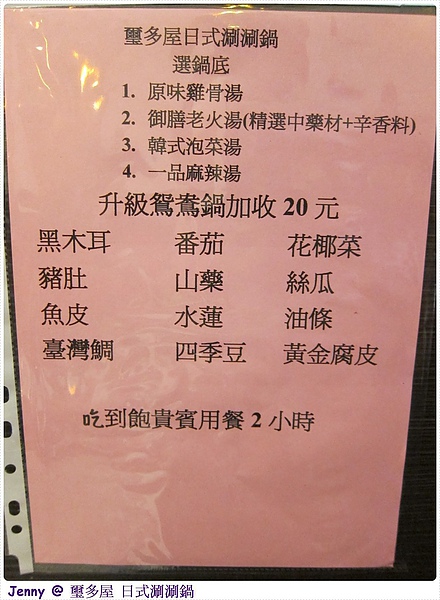 璽多屋日式涮涮鍋
選鍋底
1. 原味雞骨湯
2. 御膳老火湯(精選中藥材+辛香料)
3. 韓式泡菜湯
4. 一品麻辣湯
升級鴛鴦鍋加收 20 元
黑木耳 番茄 花椰菜
豬肚 山藥 絲瓜
魚皮 水蓮 油條
臺灣鯛 四季豆 黃金腐皮
吃到飽貴賓用餐 2 小時
Jenny @ 璽多屋 日式涮涮鍋